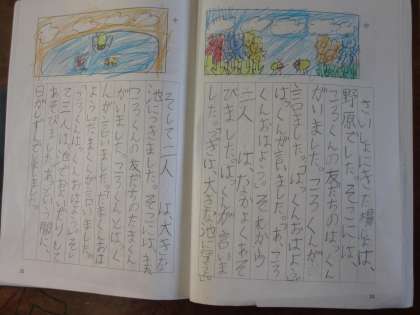 さいしょにきた場しょは、
野原でした。そこには、
ころくんの友だちのはっくん
がいました。ころくんが
言いました。「はっくんおはよう」と
はっくんが言いました。「あ、ころ
くんおはよう」と それから
二人 はなかよくあそ
びました。はっくんが言いま
した。「つぎは、大きな池に
そして二人 は、大きな
池につきました。そこには、また
ころくんの友だちのたまくん
がいました。ころくんとはっく
んが言いました。「たまくんおは
よう。」たまくんが言いました。
て三人は池でおよいだりして
あそびました。あっという間に、
日がしずみました。